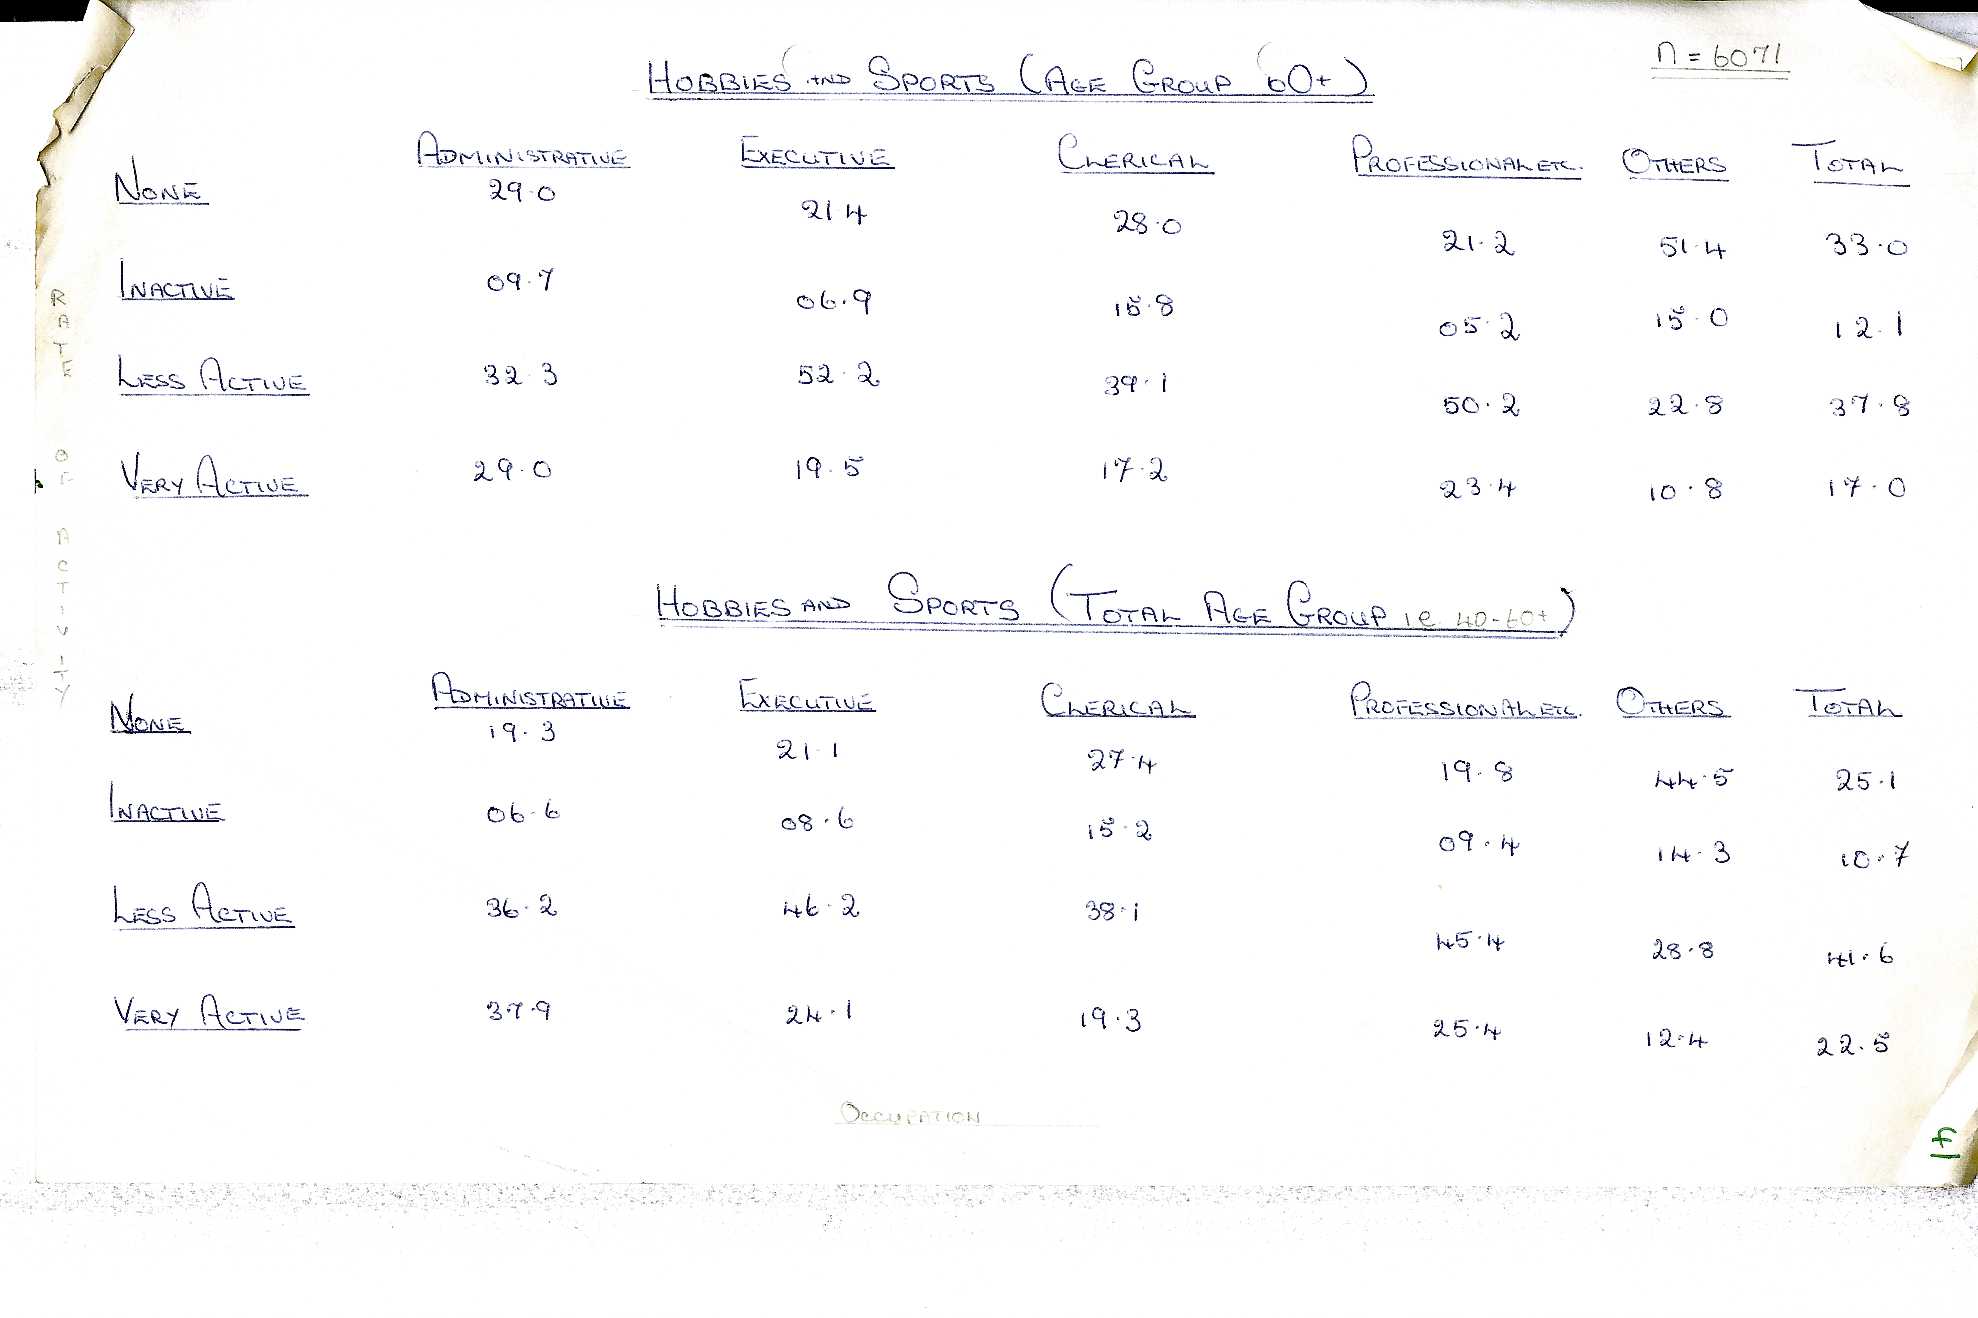 n = 6071
HOBBIES AND SPORTS (AGE GROUP 60+)
ADMINISTRATIVE EXECUTIVE CLERICAL PROFESSIONAL ETC. OTHERS TOTAL
NONE 29.0 21.4 28.0 21.2 51.4 33.0
INACTIVE 09.7 06.9 15.8 05.2 15.0 12.1
LESS ACTIVE 32.3 52.2 39.1 50.2 22.8 37.8
VERY ACTIVE 29.0 19.5 17.2 23.4 10.8 17.0
HOBBIES AND SPORTS (TOTAL AGE GROUP ie 40-60+)
ADMINISTRATIVE EXECUTIVE CLERICAL PROFESSIONAL ETC. OTHERS TOTAL
NONE 19.3 21.1 27.4 19.8 44.5 25.1
INACTIVE 06.6 08.6 15.2 09.4 14.3 10.7
LESS ACTIVE 36.2 46.2 38.1 45.4 28.8 41.6
VERY ACTIVE 37.9 24.1 19.3 25.4 12.4 22.5
RATE OF ACTIVITY
OCCUPATION
f